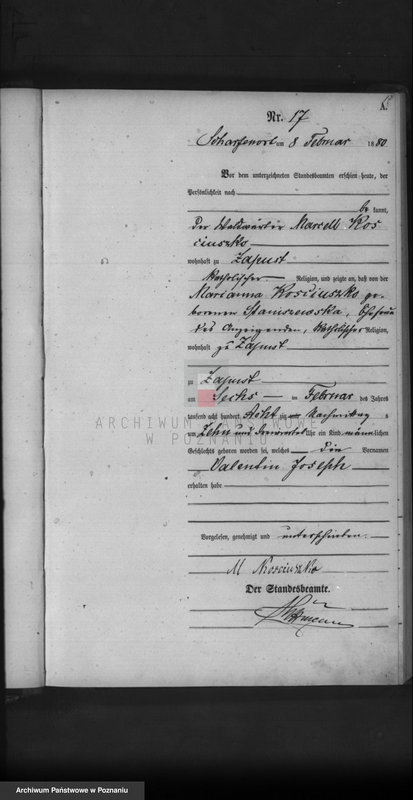 A.
Nr. 17
Scharfenort am 8 Februar 1880
Vor dem unterzeichneten Standesbeamten erschien heute, der
Persönlichkeit nach
be kannt,
der Waldwärter Marcell Kos
ciuszko
wohnhaft zu Zapust
katholischer Religion, und zeigte an, daß von der
Marianna Kosciuszko ge-
borenen Staniszewska, Ehefrau
des Anzeigenden, katholischer Religion,
wohnhaft zu Zapust
zu Zapust
am Sechs ten Februar des Jahres
tausend acht hundert Acht zig Nachmittag s
um Zehn und dreiviertel Uhr ein Kind männlichen
Geschlechts geboren worden sei, welches die Vornamen
Valentin Joseph
erhalten habe
Vorgelesen, genehmigt und unterschrieben.
M Kosciuszko
Der Standesbeamte.
ARCHIWUM PAŃSTWOWE
W POZNANIU
Archiwum Państwowe w Poznaniu